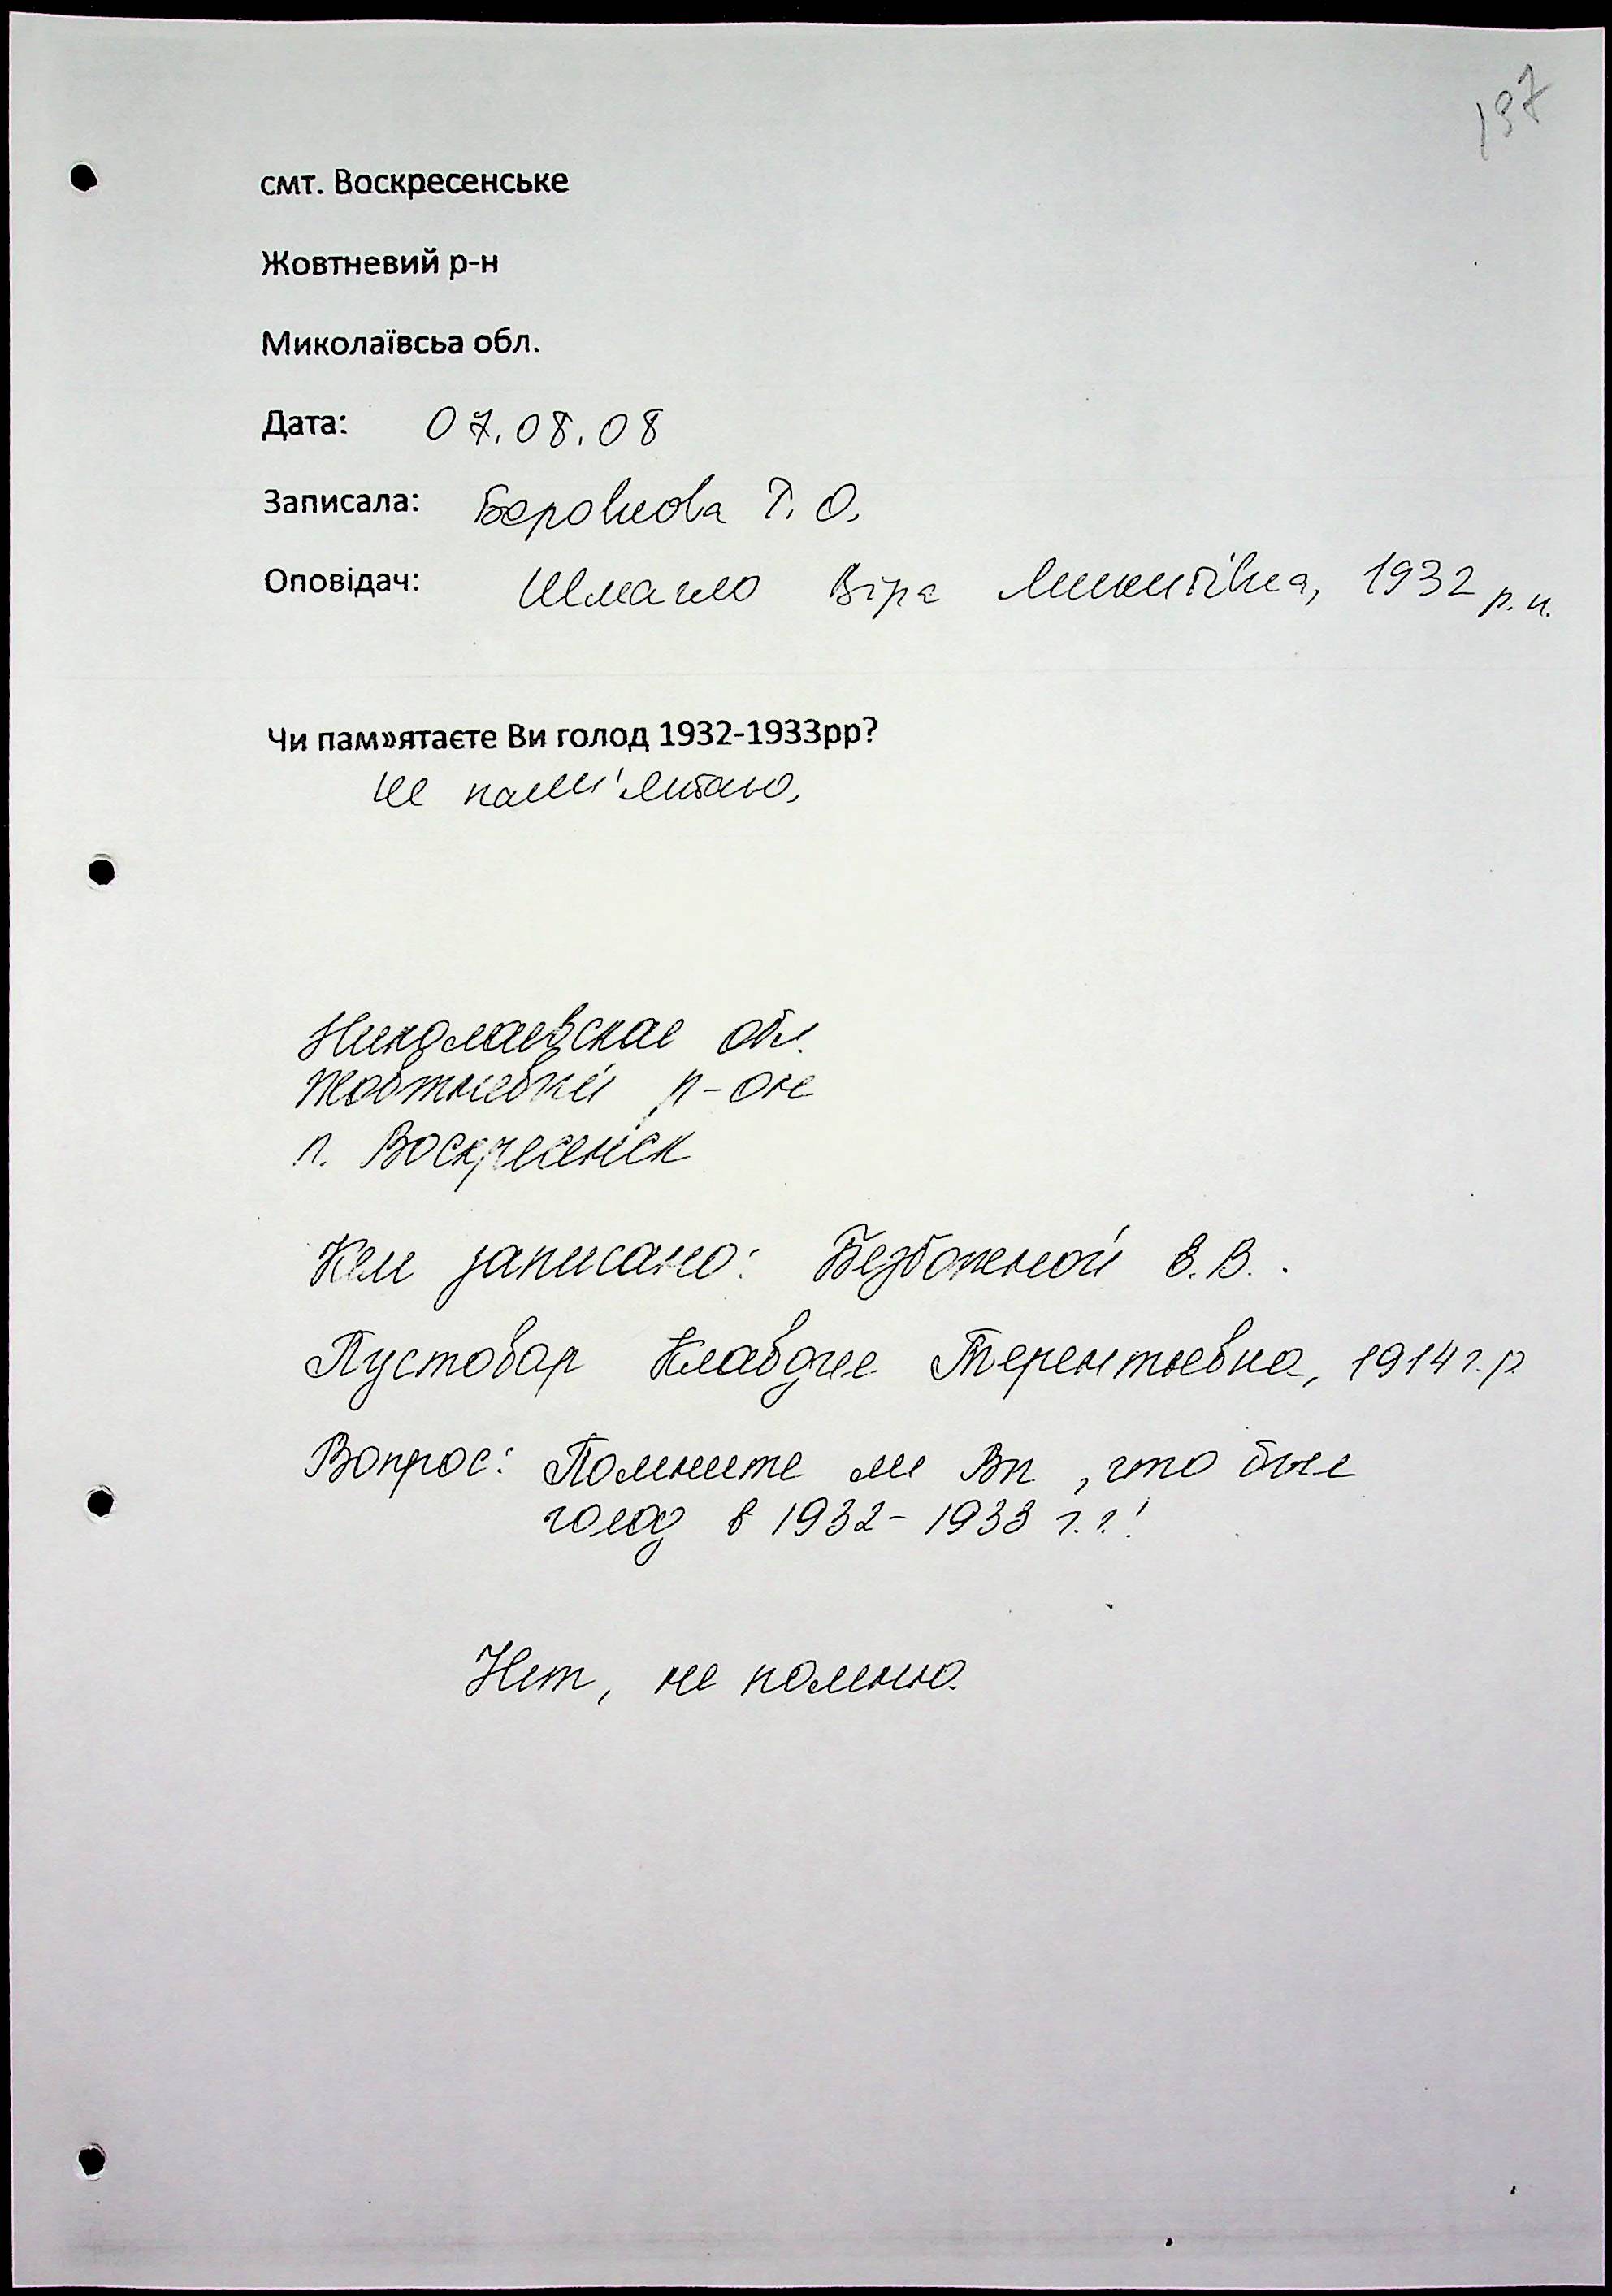 197
смт. Воскресенське
Жовтневий р-н
Миколаївсьа обл.
Дата: 07.08.08
Записала: Боровкова Т. О.
Оповідач: Шмагло Віра Микитівна, 1932 р.н.
Чи пам»ятаєте Ви голод 1932-1933рр?
Не пам'ятаю.
Николаевская обл.
Жовтневый р-он
п. Воскресенск
Кем записано: Безбожной В.В.
Пустовар Клавдия Терентьевна, 1914 г.р
Вопрос: Помните ли Вы, что был
голод в 1932-1933 г.г!
Нет, не помню.